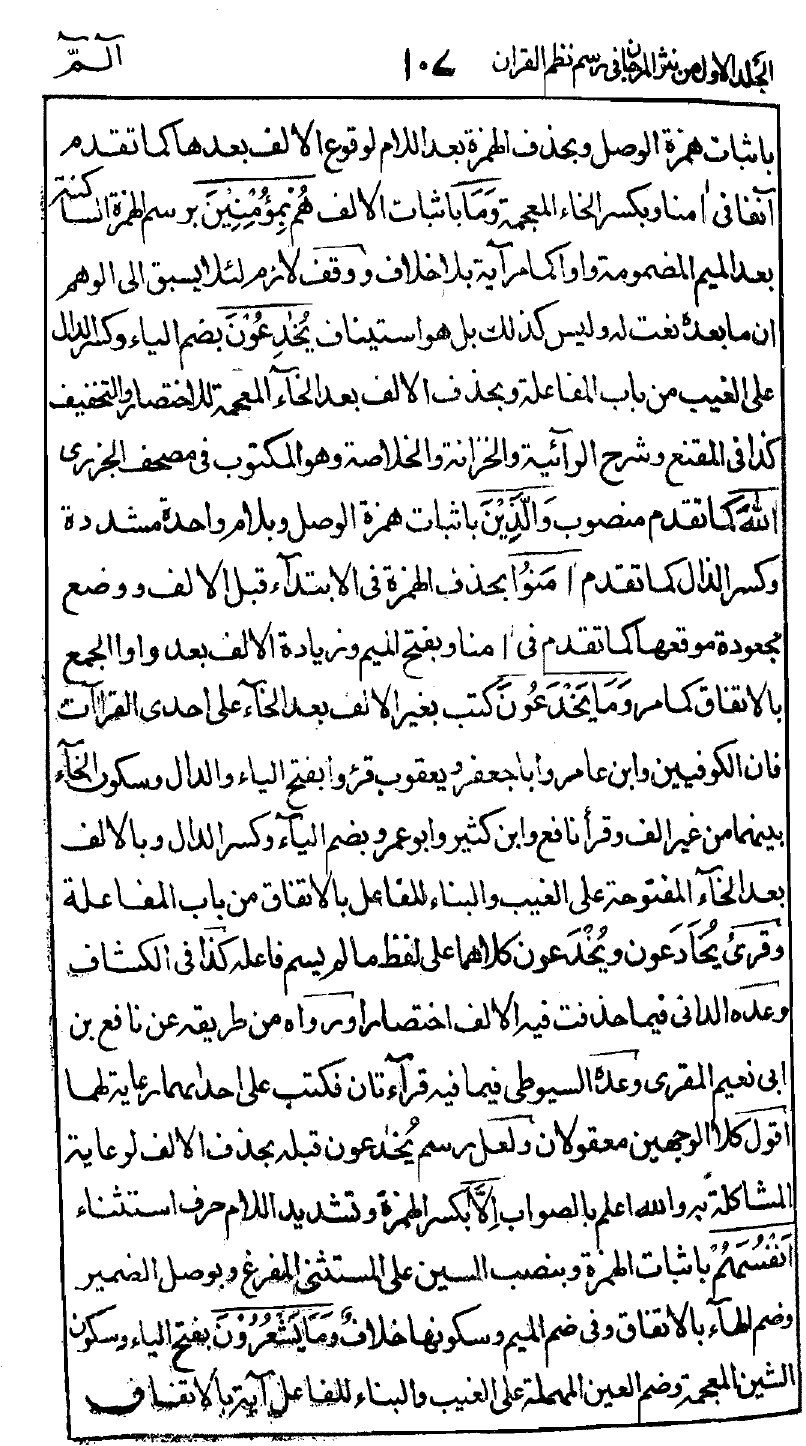 الجلد الاول من نثر المرجان فى رسم نظم القران ١٠٧ آلـمّ
باثبات همزة الوصل وبحذف الهمزة بعد اللام لوقوع الالف بعدها كما تقدم
آنفا فى اٰمنا وبكسر الخاء المعجمة وَمَا باثبات الالف هُمْ بِمُؤْمِنِيْنَ برسم الهمزة الساكنة
بعد الميم المضمومة واوا كما مر آية بلا خلاف ووقف لازم لئلا يسبق الى الوهم
ان ما بعده نعت له وليس كذلك بل هو استيناف يُخٰدِعُوْنَ بضم الياء وكسر الدال
على الغيب من باب المفاعلة وبحذف الالف بعد الخآء المعجمة للاختصار والتخفيف
كذا فى المقنع وشرح الرآئية والخزانة والخلاصة وهو المكتوب فى مصحف الجزرى
اللهَ كما تقدم منصوب وَالَّذِيْنَ باثبات همزة الوصل وبلام واحدة مشددة
وكسر الذال كما تقدم اٰمَنُوْا بحذف الهمزة فى الابتدآء قبل الالف ووضع
مجعودة موقعها كما تقدم فى اٰمنا وبفتح الميم وزيادة الالف بعد واو الجمع
بالاتفاق كما مر وَمَا يَخْدَعُوْنَ كتب بغير الالف بعد الخآء على احدى القراآت
فان الكوفيين وابن عامر وابا جعفر ويعقوب قرؤا بفتح الياء والدال وسكون الخآء
بينهما من غير الف وقرأ نافع وابن كثير وابو عمرو بضم اليآء وكسر الدال وبالالف
بعد الخآء المفتوحة على الغيب والبناء للفاعل بالاتفاق من باب المفاعلة
وقرئ يُخَادَعون ويُخْدَعون كلاهما على لفظ ما لم يسم فاعله كذا فى الكشاف
وعده الدانى فيما حذفت فيه الالف اختصارا ورواه من طريقه عن نافع بن
ابى نعيم المقرى وعدّه السيوطى فيما فيه قرآءتان فكتب على احداهما رعاية لهما
اقول كلا الوجهين معقولان ولعل رسم يُخٰدعون قبله بحذف الالف لرعاية
المشاكلة والله اعلم بالصواب اِلَّا بكسر الهمزة وتشديد اللام حرف استثناء
اَنْفُسَهُمْ باثبات الهمزة وبنصب السين على المستثنى المفرغ وبوصل الضمير
وضم الهآء بالاتفاق وفى ضم الميم وسكونها خلاف وَمَا يَشْعُرُوْنَ بفتح الياء وسكون
الشين المعجمة وضم العين المهملة على الغيب والبناء للفاعل آية بالاتفاق